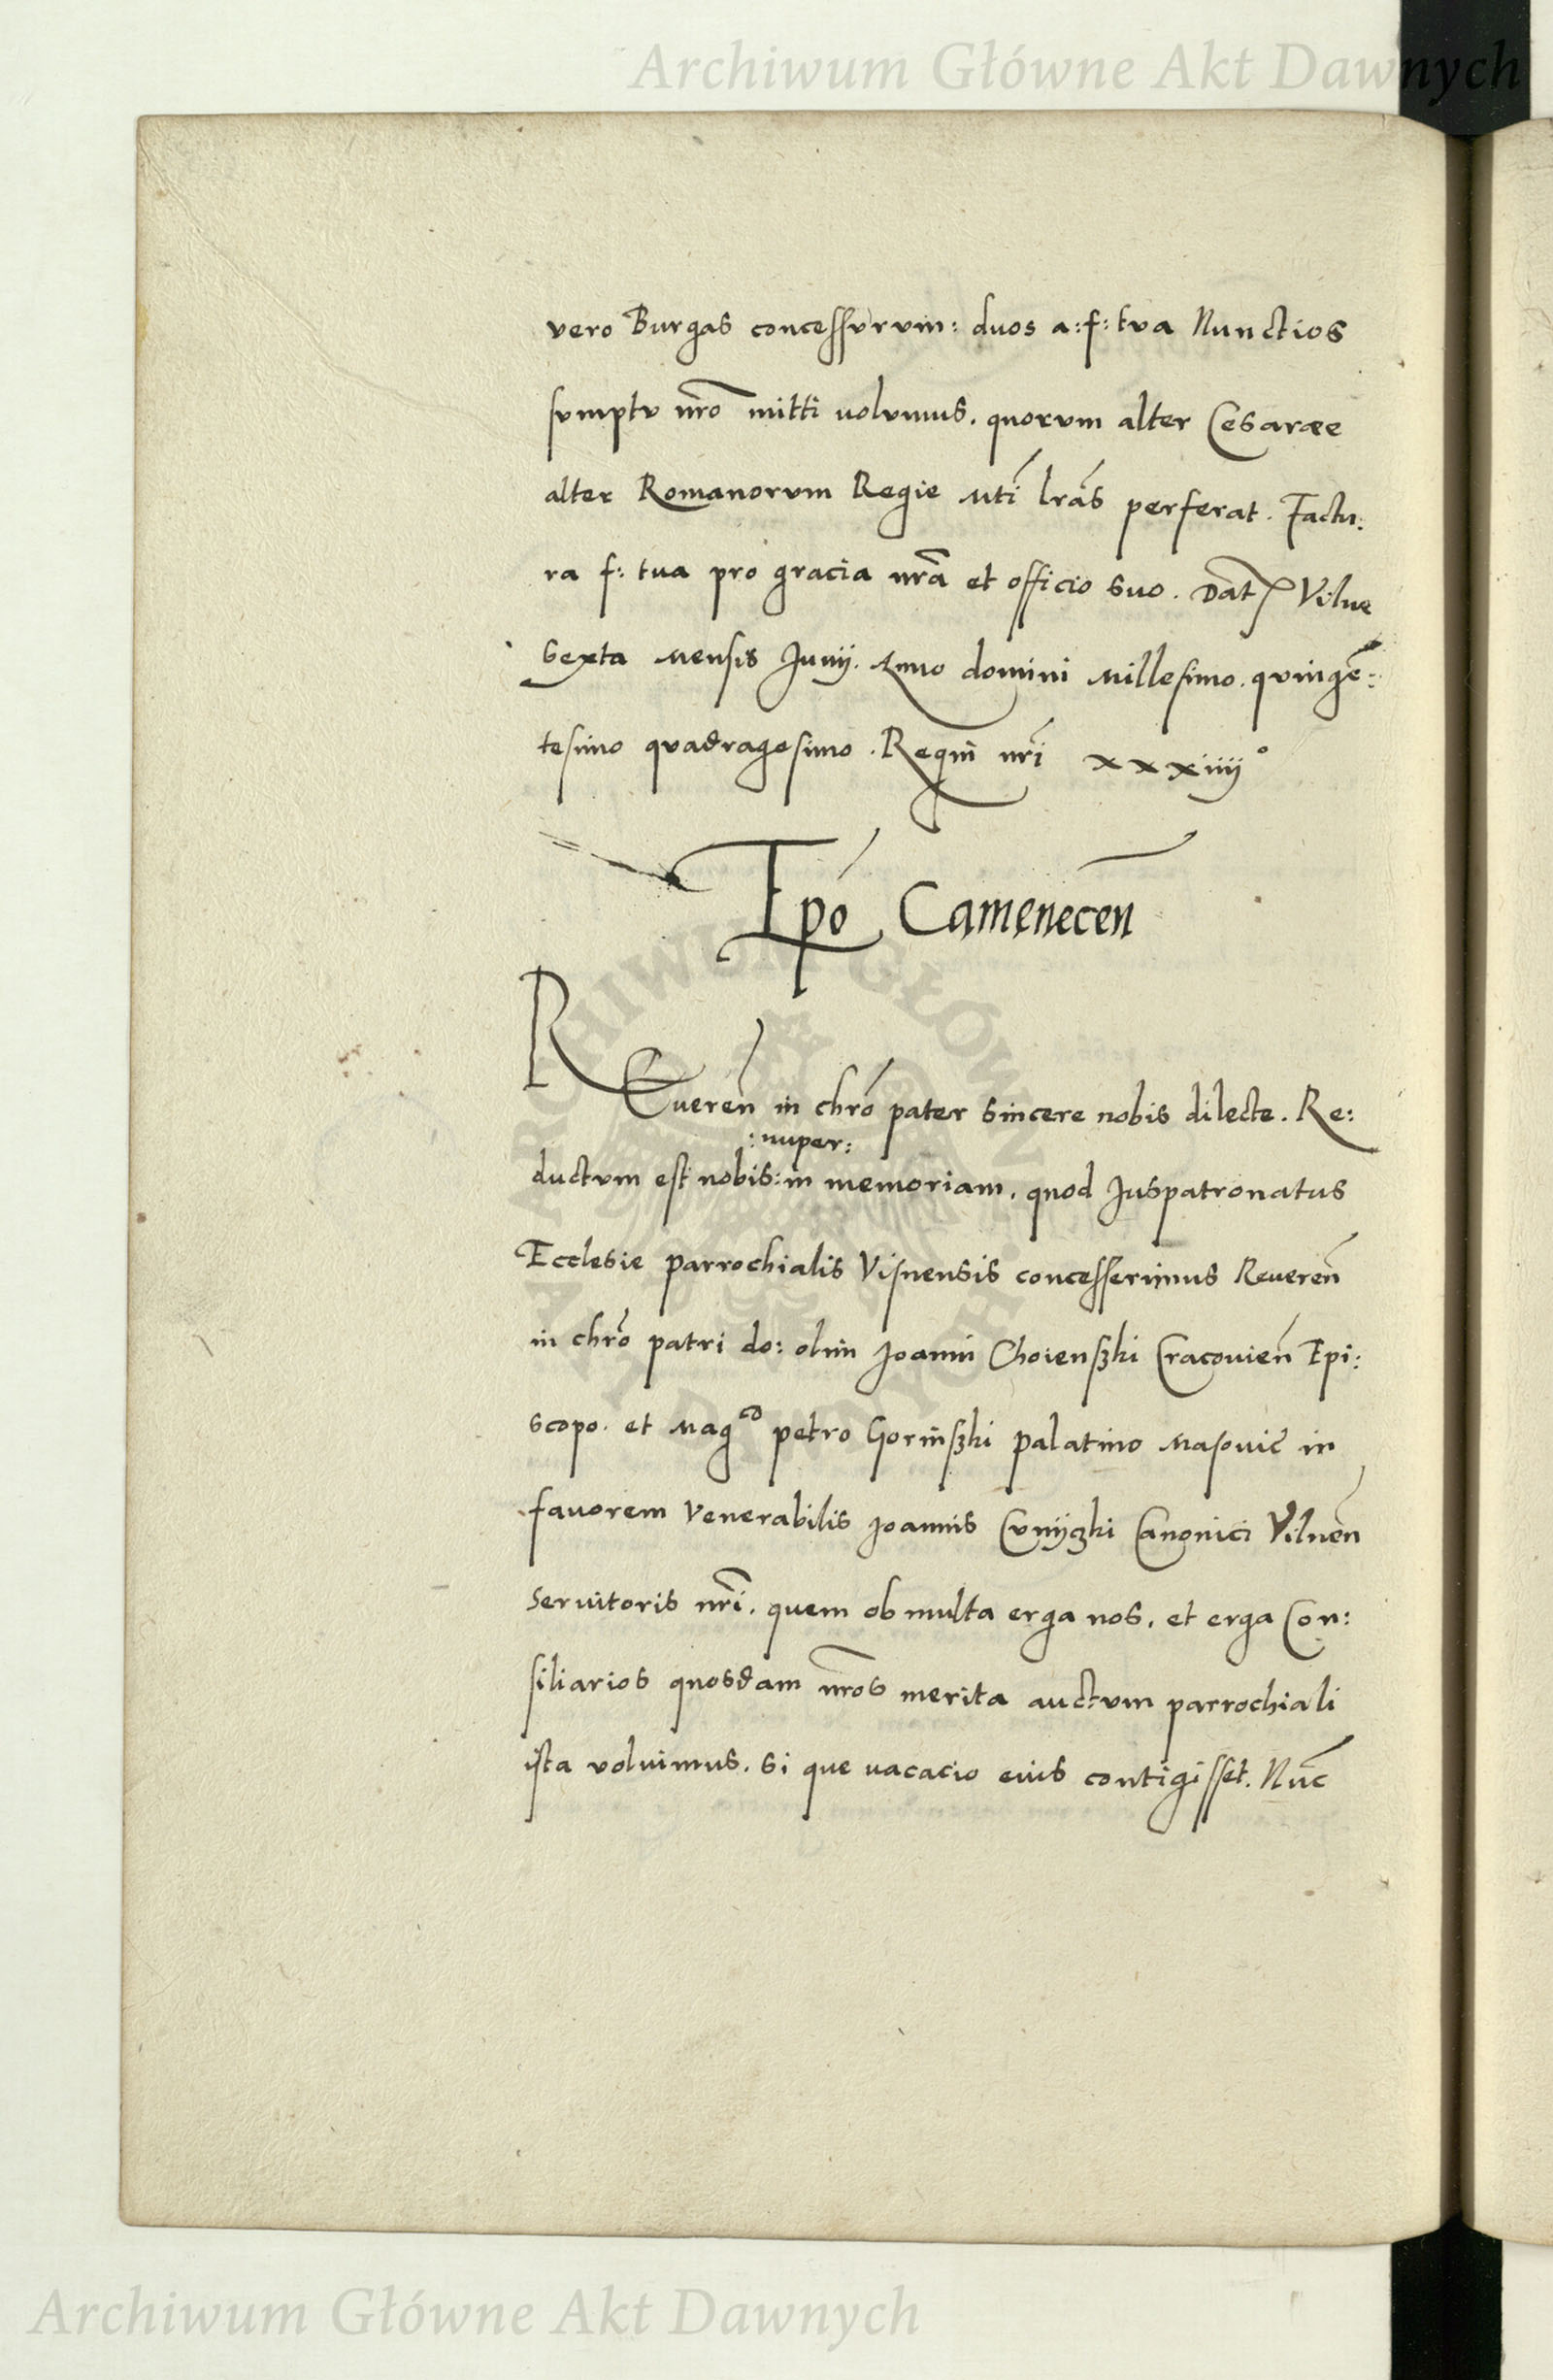 Archiwum Główne Akt Dawnych
vero Burgas concessurum: duos a: f: tua Nunctios
sumptu nr̃o mitti uolumus. quorum alter Cesaree
alter Romanorum Regie Mti lrãs perferat. Factu:
ra f: tua pro gracia nrã et officio suo. Dat Vilne
Sexta mensis Junij. Anno domini Millesimo. quingẽ:
tesimo quadragesimo. Regni nrĩ xxxiiij°
Epõ Camenecen̄
REueren̄ in chrõ pater sincere nobis dilecte. Re:
:nuper:
ductum est nobis: in memoriam. quod Juspatronatus
Ecclesie parrochialis Visnensis concesserimus Reueren̄
in chrõ patri do: olim Joanni Choienski Cracouien̄ Epi:
scopo. et Mag^co petro Gorinski palatino Masouie in
fauorem Venerabilis Joannis Canonici Vilnen̄
Seruitoris nrĩ. quem ob multa erga nos. et erga Con:
siliarios quosdam nrõs merita auctum parrochiali
ista voluimus. si que uacacio eius contigisset. Nũc
ARCHIWUM GŁÓWNE AKT DAWNYCH
Archiwum Główne Akt Dawnych